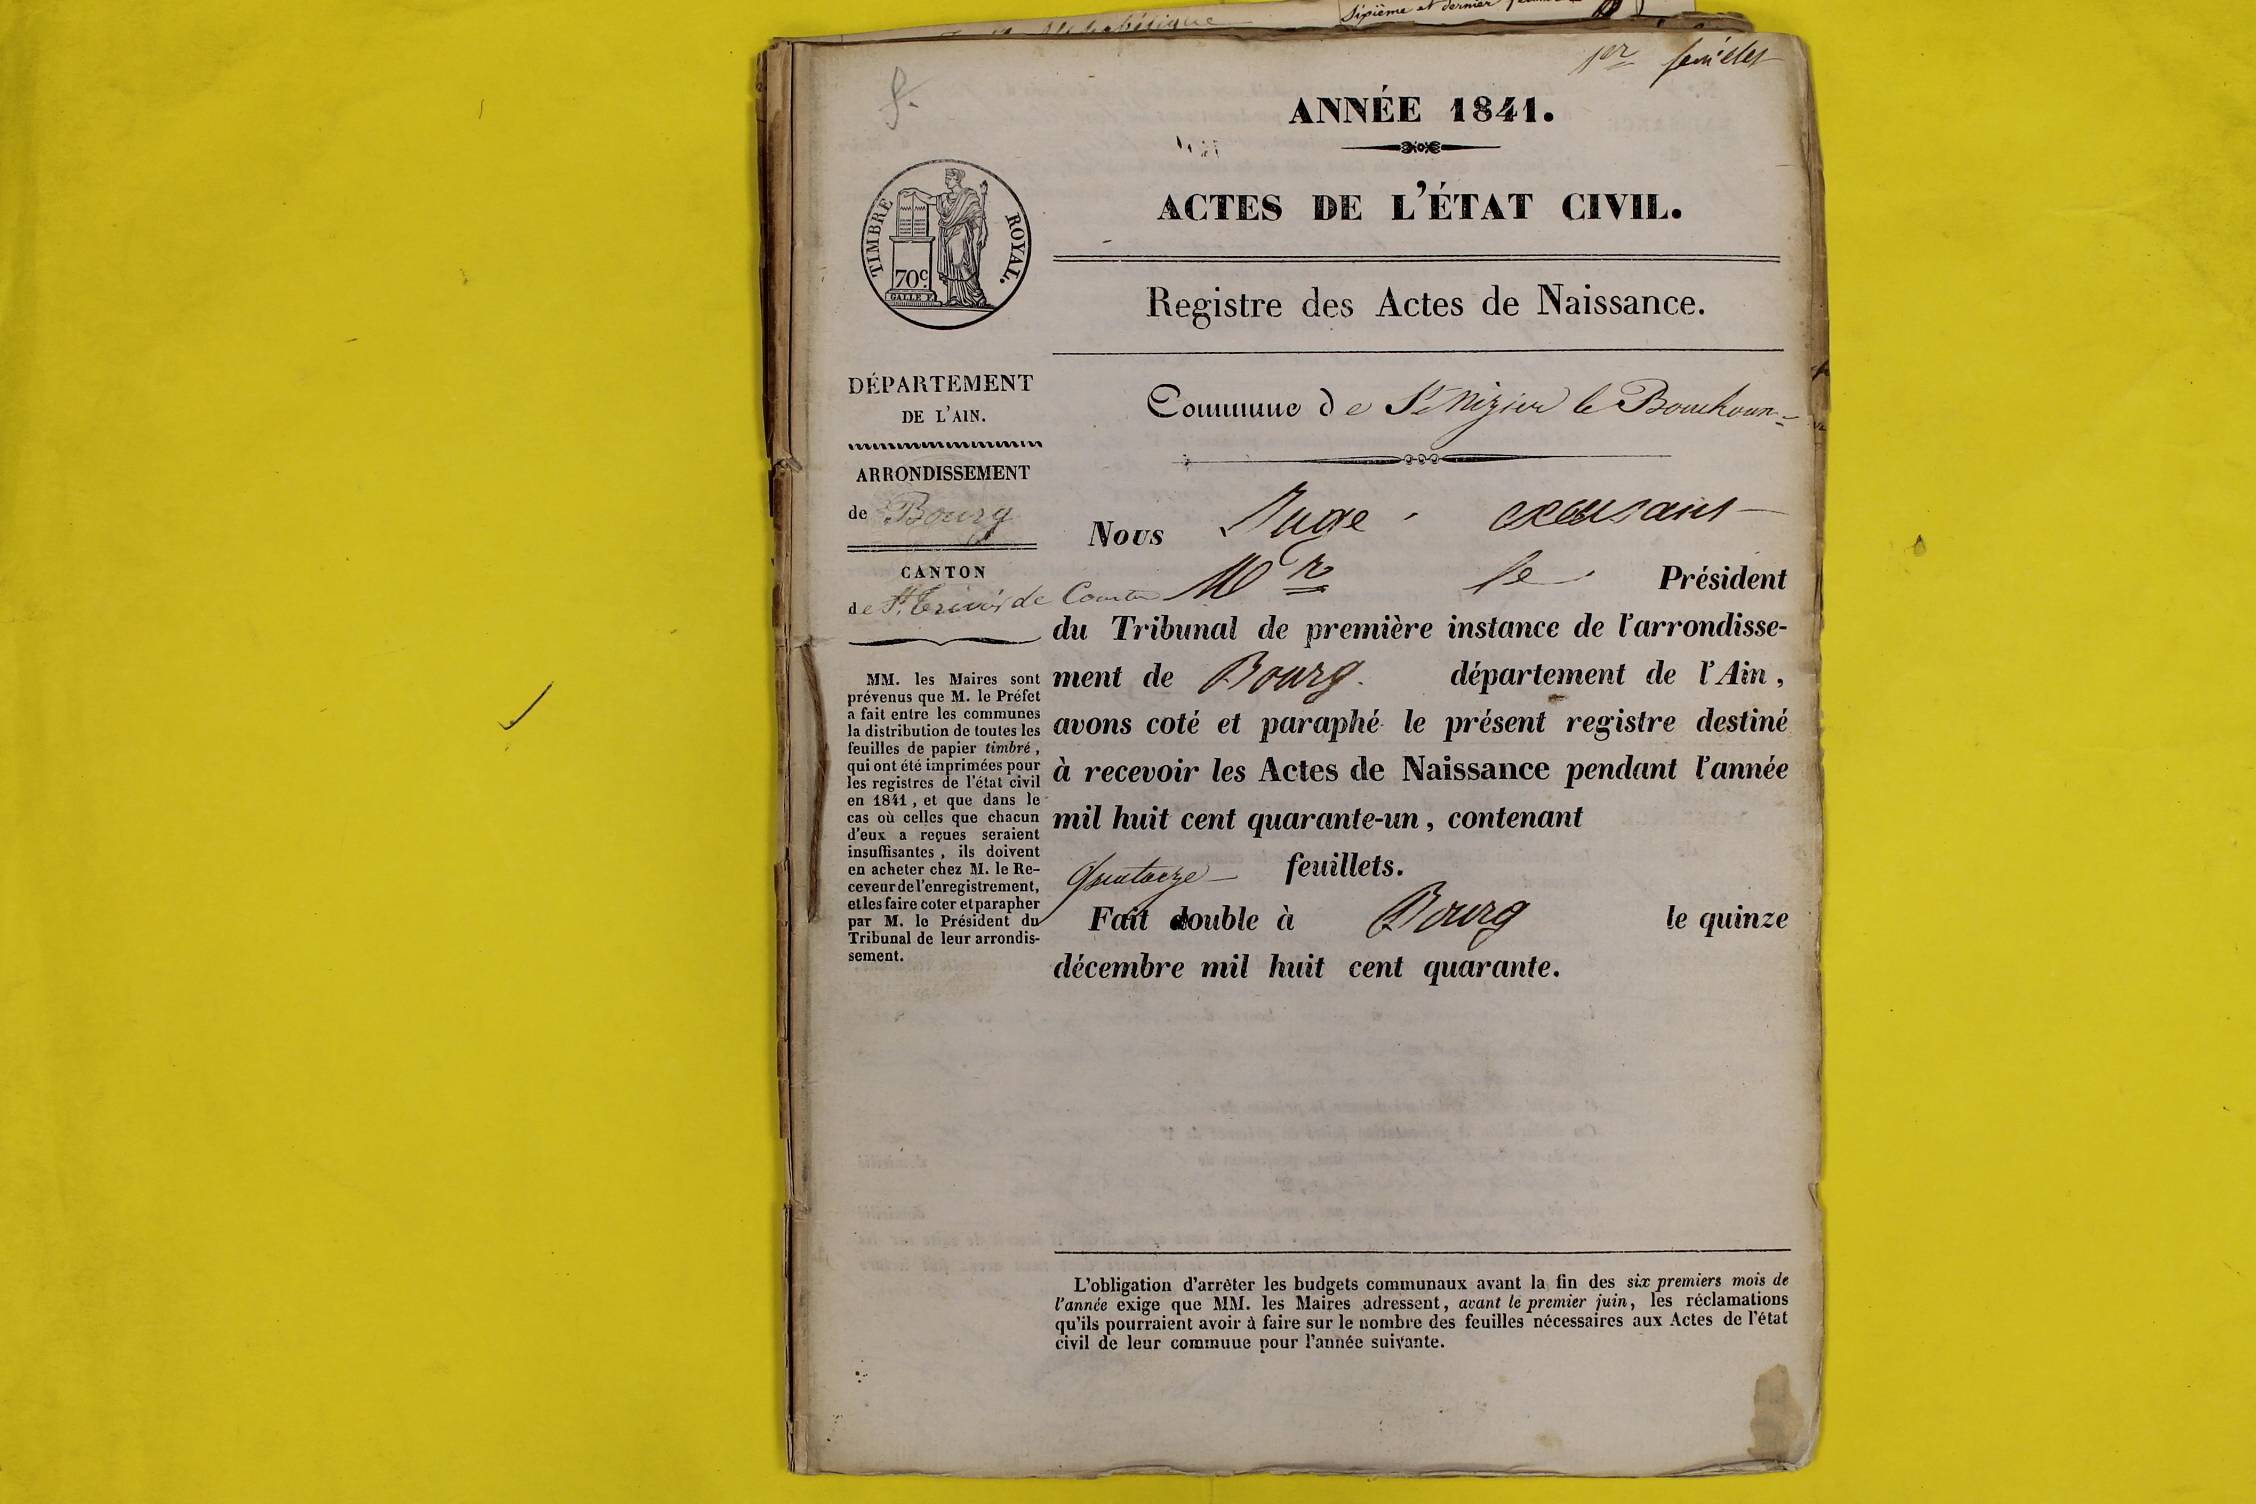 Sixième et dernier
1er feuillet
ANNÉE 1841.
ACTES DE L'ÉTAT CIVIL.
Registre des Actes de Naissance.
TIMBRE ROYAL.
70c.
GALLE F.
DÉPARTEMENT
DE L'AIN.
ARRONDISSEMENT
de Bourg
CANTON
de St Trivier de Courtes
MM. les Maires sont
prévenus que M. le Préfet
a fait entre les communes
la distribution de toutes les
feuilles de papier timbré,
qui ont été imprimées pour
les registres de l'état civil
en 1841, et que dans le
cas où celles que chacun
d'eux a reçues seraient
insuffisantes, ils doivent
en acheter chez M. le Re-
ceveur de l'enregistrement,
et les faire coter et parapher
par M. le Président du
Tribunal de leur arrondis-
sement.
Commune de St Nizier le Bouchoux
Nous Juge excusant
Mr le Président
du Tribunal de première instance de l'arrondisse-
ment de Bourg. département de l'Ain,
avons coté et paraphé le présent registre destiné
à recevoir les Actes de Naissance pendant l'année
mil huit cent quarante-un, contenant
Quatorze feuillets.
Fait double à Bourg le quinze
décembre mil huit cent quarante.
L'obligation d'arrêter les budgets communaux avant la fin des six premiers mois de
l'année exige que MM. les Maires adressent, avant le premier juin, les réclamations
qu'ils pourraient avoir à faire sur le nombre des feuilles nécessaires aux Actes de l'état
civil de leur commune pour l'année suivante.